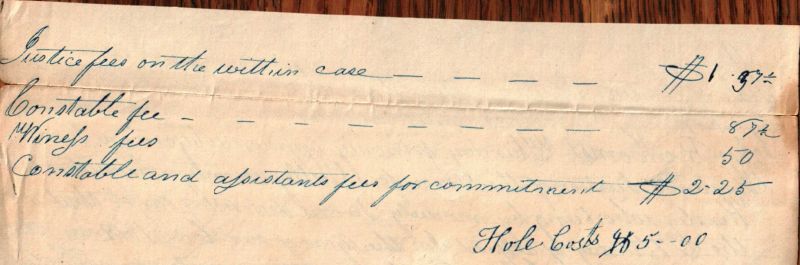 Justice fees on the within case — — — — $1.37½
Constable fee — — — — — — — 87½
Witness fees 50
Constable and assistants fees for commitment $2-25
Hole Costs $5--00